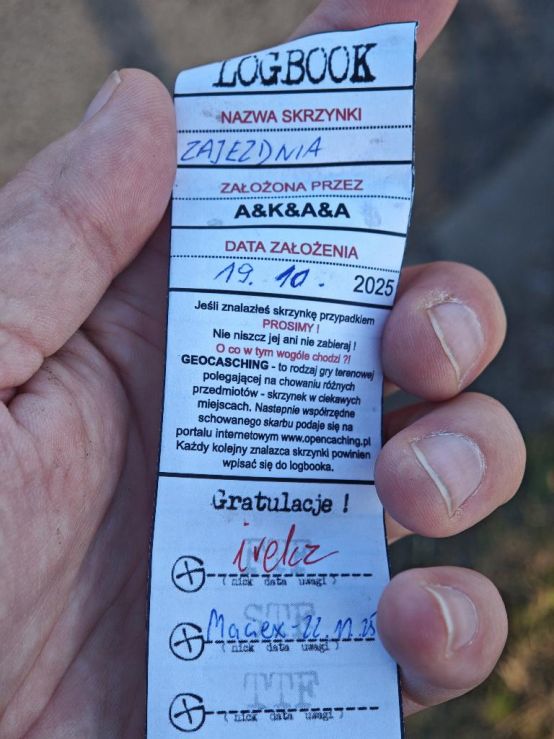 LOGBOOK
NAZWA SKRZYNKI
ZAJEZDNIA
ZAŁOŻONA PRZEZ
A&K&A&A
DATA ZAŁOŻENIA
19. 10. 2025
Jeśli znalazłeś skrzynkę przypadkiem
PROSIMY !
Nie niszcz jej ani nie zabieraj !
O co w tym wogóle chodzi ?!
GEOCASCHING - to rodzaj gry terenowej
polegającej na chowaniu różnych
przedmiotów - skrzynek w ciekawych
miejscach. Następnie współrzędne
schowanego skarbu podaje się na
portalu internetowym www.opencaching.pl
Każdy kolejny znalazca skrzynki powinien
wpisać się do logbooka.
Gratulacje !
FTF
irekz
( nick data uwagi )
STF
Maciex-22.11.25
( nick data uwagi )
TTF
( nick data uwagi )